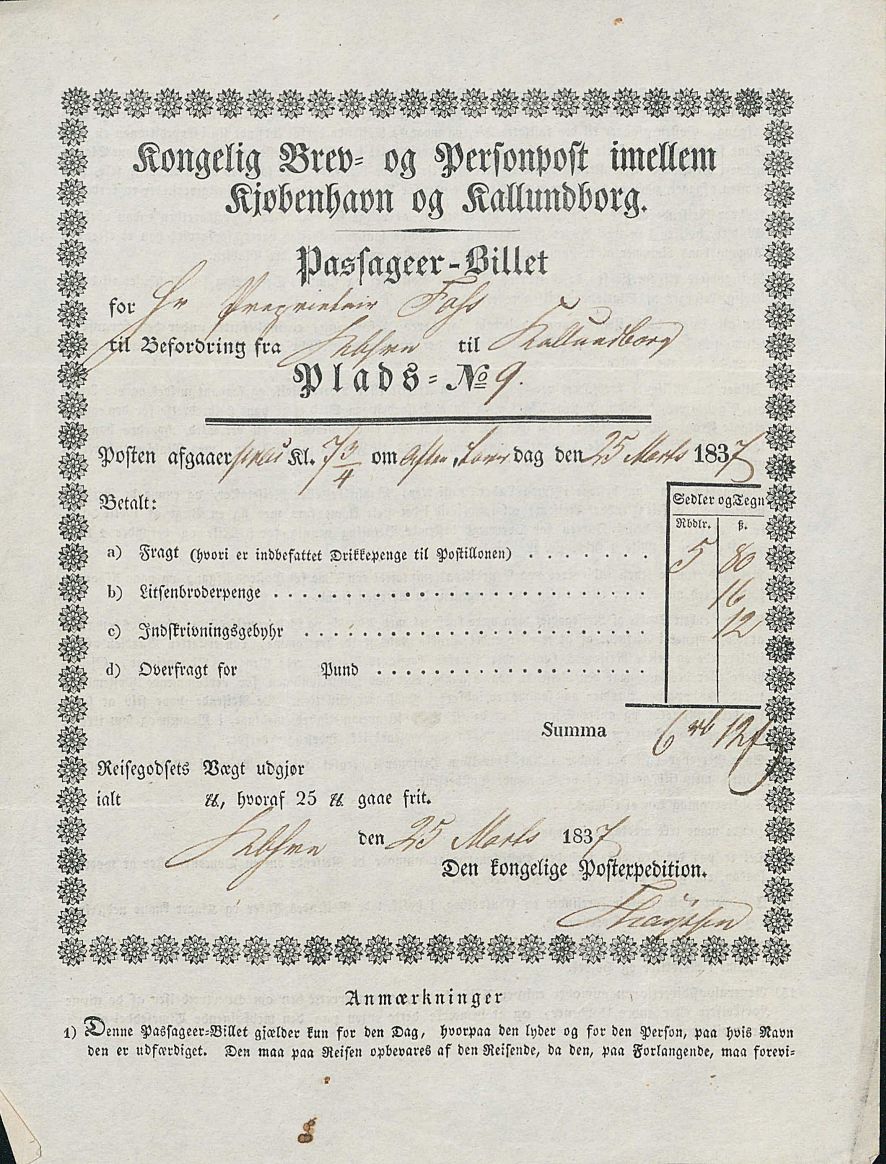 Kongelig Brev- og Personpost imellem
Kjøbenhavn og Kallundborg.
Passageer-Billet
for Hr Proprietair Foss
til Befordring fra Kbhvn til Kallundborg
Plads-No 9.
Posten afgaaer præcis Kl. 7 3/4 om Aften, Løverdag den 25 Marts 1837
Betalt:
Sedler og Tegn
Rbdlr. ß.
a) Fragt (hvori er indbefattet Drikkepenge til Postillonen) . . . . . . . 5 80
b) Litsenbroderpenge . . . . . . . . . . . . . . . . . . . . . . 16
c) Indskrivningsgebyhr . . . . . . . . . . . . . . . . . . . . 12
d) Overfragt for Pund . . . . . . . . . . . . . . . .
Summa 6 rb 12 ß
Reisegodsets Vægt udgjør
ialt ℔, hvoraf 25 ℔ gaae frit.
Kbhvn den 25 Marts 1837
Den kongelige Postexpedition.
Anmærkninger
1) Denne Passageer-Billet gjælder kun for den Dag, hvorpaa den lyder og for den Person, paa hvis Navn
den er udfærdiget. Den maa paa Reisen opbevares af den Reisende, da den, paa Forlangende, maa forevi-